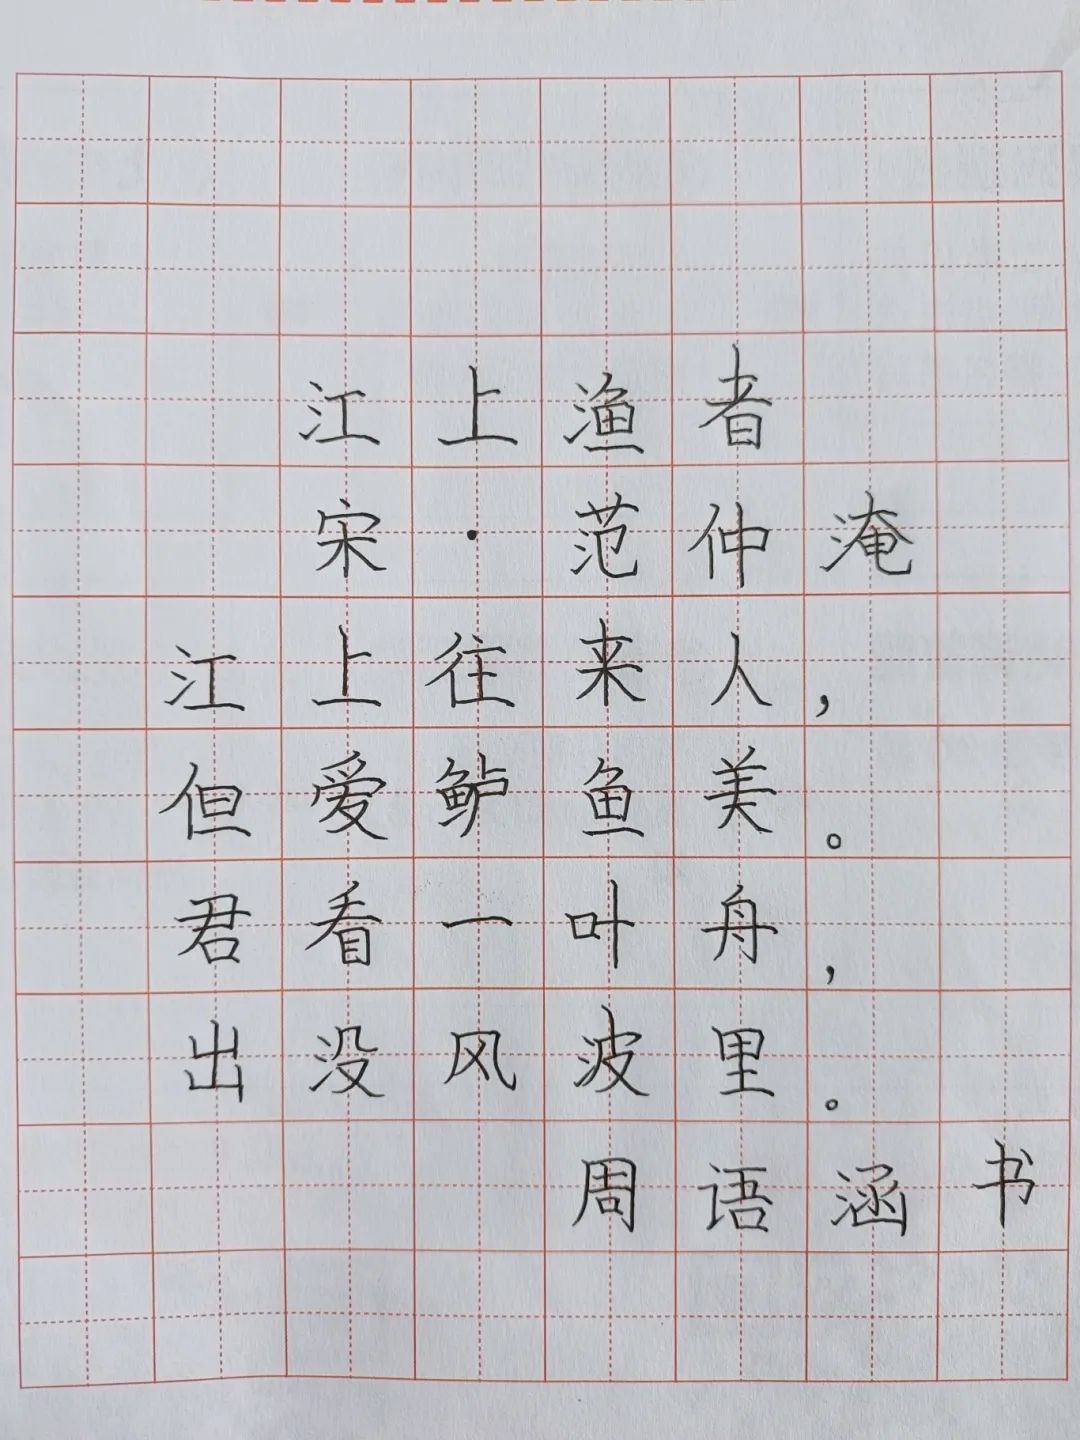 江上渔者
宋·范仲淹
江上往来人，
但爱鲈鱼美。
君看一叶舟，
出没风波里。
周语涵书